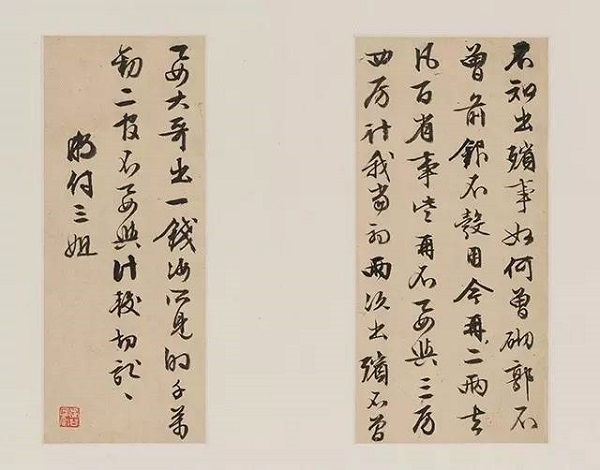 不知出殯事如何曾砌郭不
曾前銀不彀用今再二兩去
凡百省事些再不要與三房
四房計我當初兩次出殯不曾
要大哥出一錢汝所見的千萬
勸二官不要與計校切記〻
明付三姐